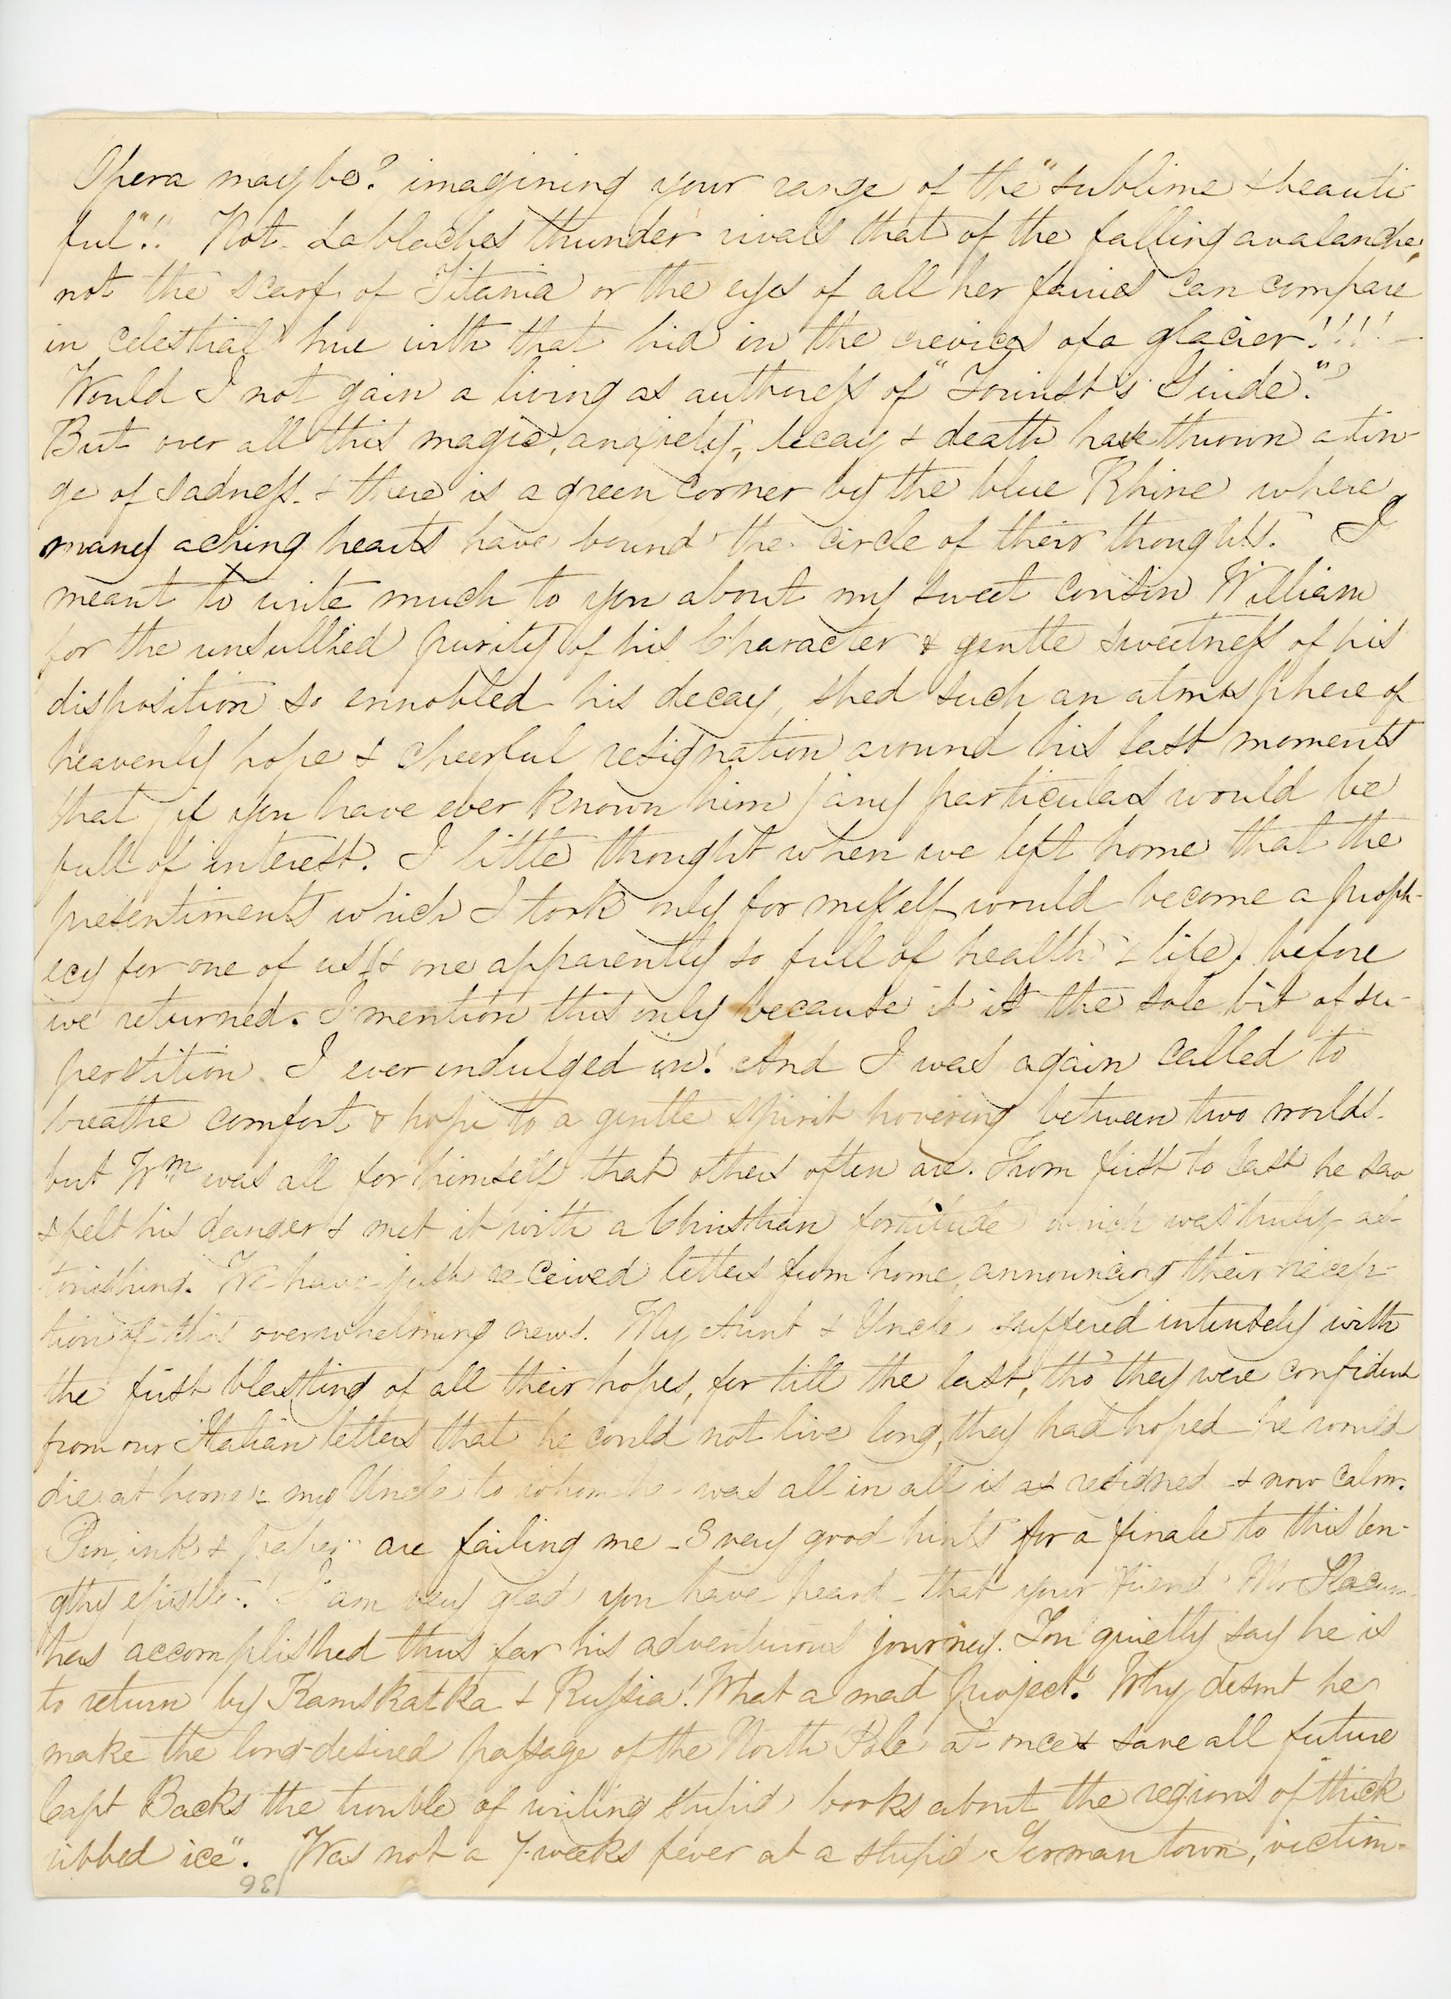 Opera may be? imagining your range of the "sublime & beauti
ful"!! Not Lablaches thunder rivals that of the falling avalanche,
not the scarf of Titania or the eyes of all her fairies can compare
in celestial hue with that hid in the crevices of a glacier!!!! –
Would I not gain a living as authoress of "Tourist's Guide"?
But over all this magic, anxiety, decay & death have thrown a tin-
ge of sadness. & there is a green corner by the blue Rhine where
many aching hearts have bound the circle of their thoughts. I
meant to write much to you about my sweet cousin William
for the unsullied purity of his Character & gentle sweetness of his
disposition so ennobled his decay, shed such an atmosphere of
heavenly hope & cheerful resignation around his last moments
that (if you have ever known him) any particulars would be
full of interest. I little thought when we left home that the
presentiments which I took only for myself would become a proph-
ecy for one of us (& one apparently so full of health & life) before
we returned. I mention this only because it is the sole bit of su-
perstition I ever indulged in! And I was again called to
breathe comfort & hope to a gentle spirit hovering between two worlds.
but Wm was all for himself that others often are. From first to last he saw
& felt his danger & met it with a Christian fortitude which was truly as-
tonishing. We have just received letters from home, announcing their recep-
tion of this overwhelming news. My Aunt & Uncle suffered intensely with
the first blasting of all their hopes, for till the last, tho' they were confident
from our Italian letters that he could not live long, they had hoped he would
die at home & my Uncle to whom he was all in all is as resigned & now calm.
Pen, ink & paper are failing me – 3 very good hints for a finale to this len-
gthy epistle. I am very glad you have heard that your friend Mr Slacum
has accomplished thus far his adventurous journey. You quietly say he is
to return by Kamskatka & Russia! What a mad project! Why doesnt he
make the long-desired passage of the North Pole at once & save all future
Capt Backs the trouble of writing stupid books about the regions of thick
ribbed ice". Was not a 7 weeks fever at a stupid German town, victim-
36